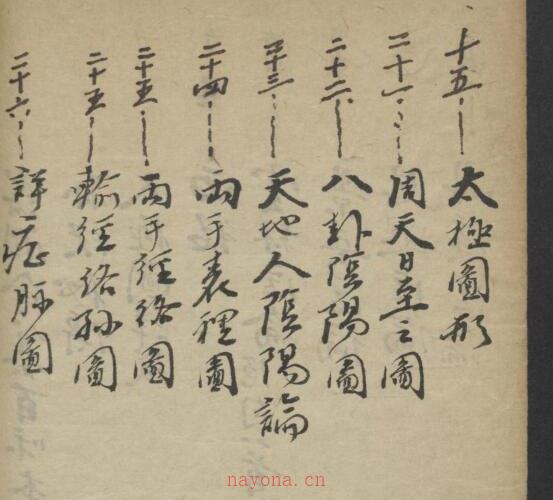 十五 太極圖形
二十一 周天日至之圖
二十二 八卦陰陽圖
二十三 天地人陰陽論
二十四 兩手表裡圖
二十五 兩手經絡圖
二十五 輸經絡孫圖
二十六 詳症脈圖
nayona.cn